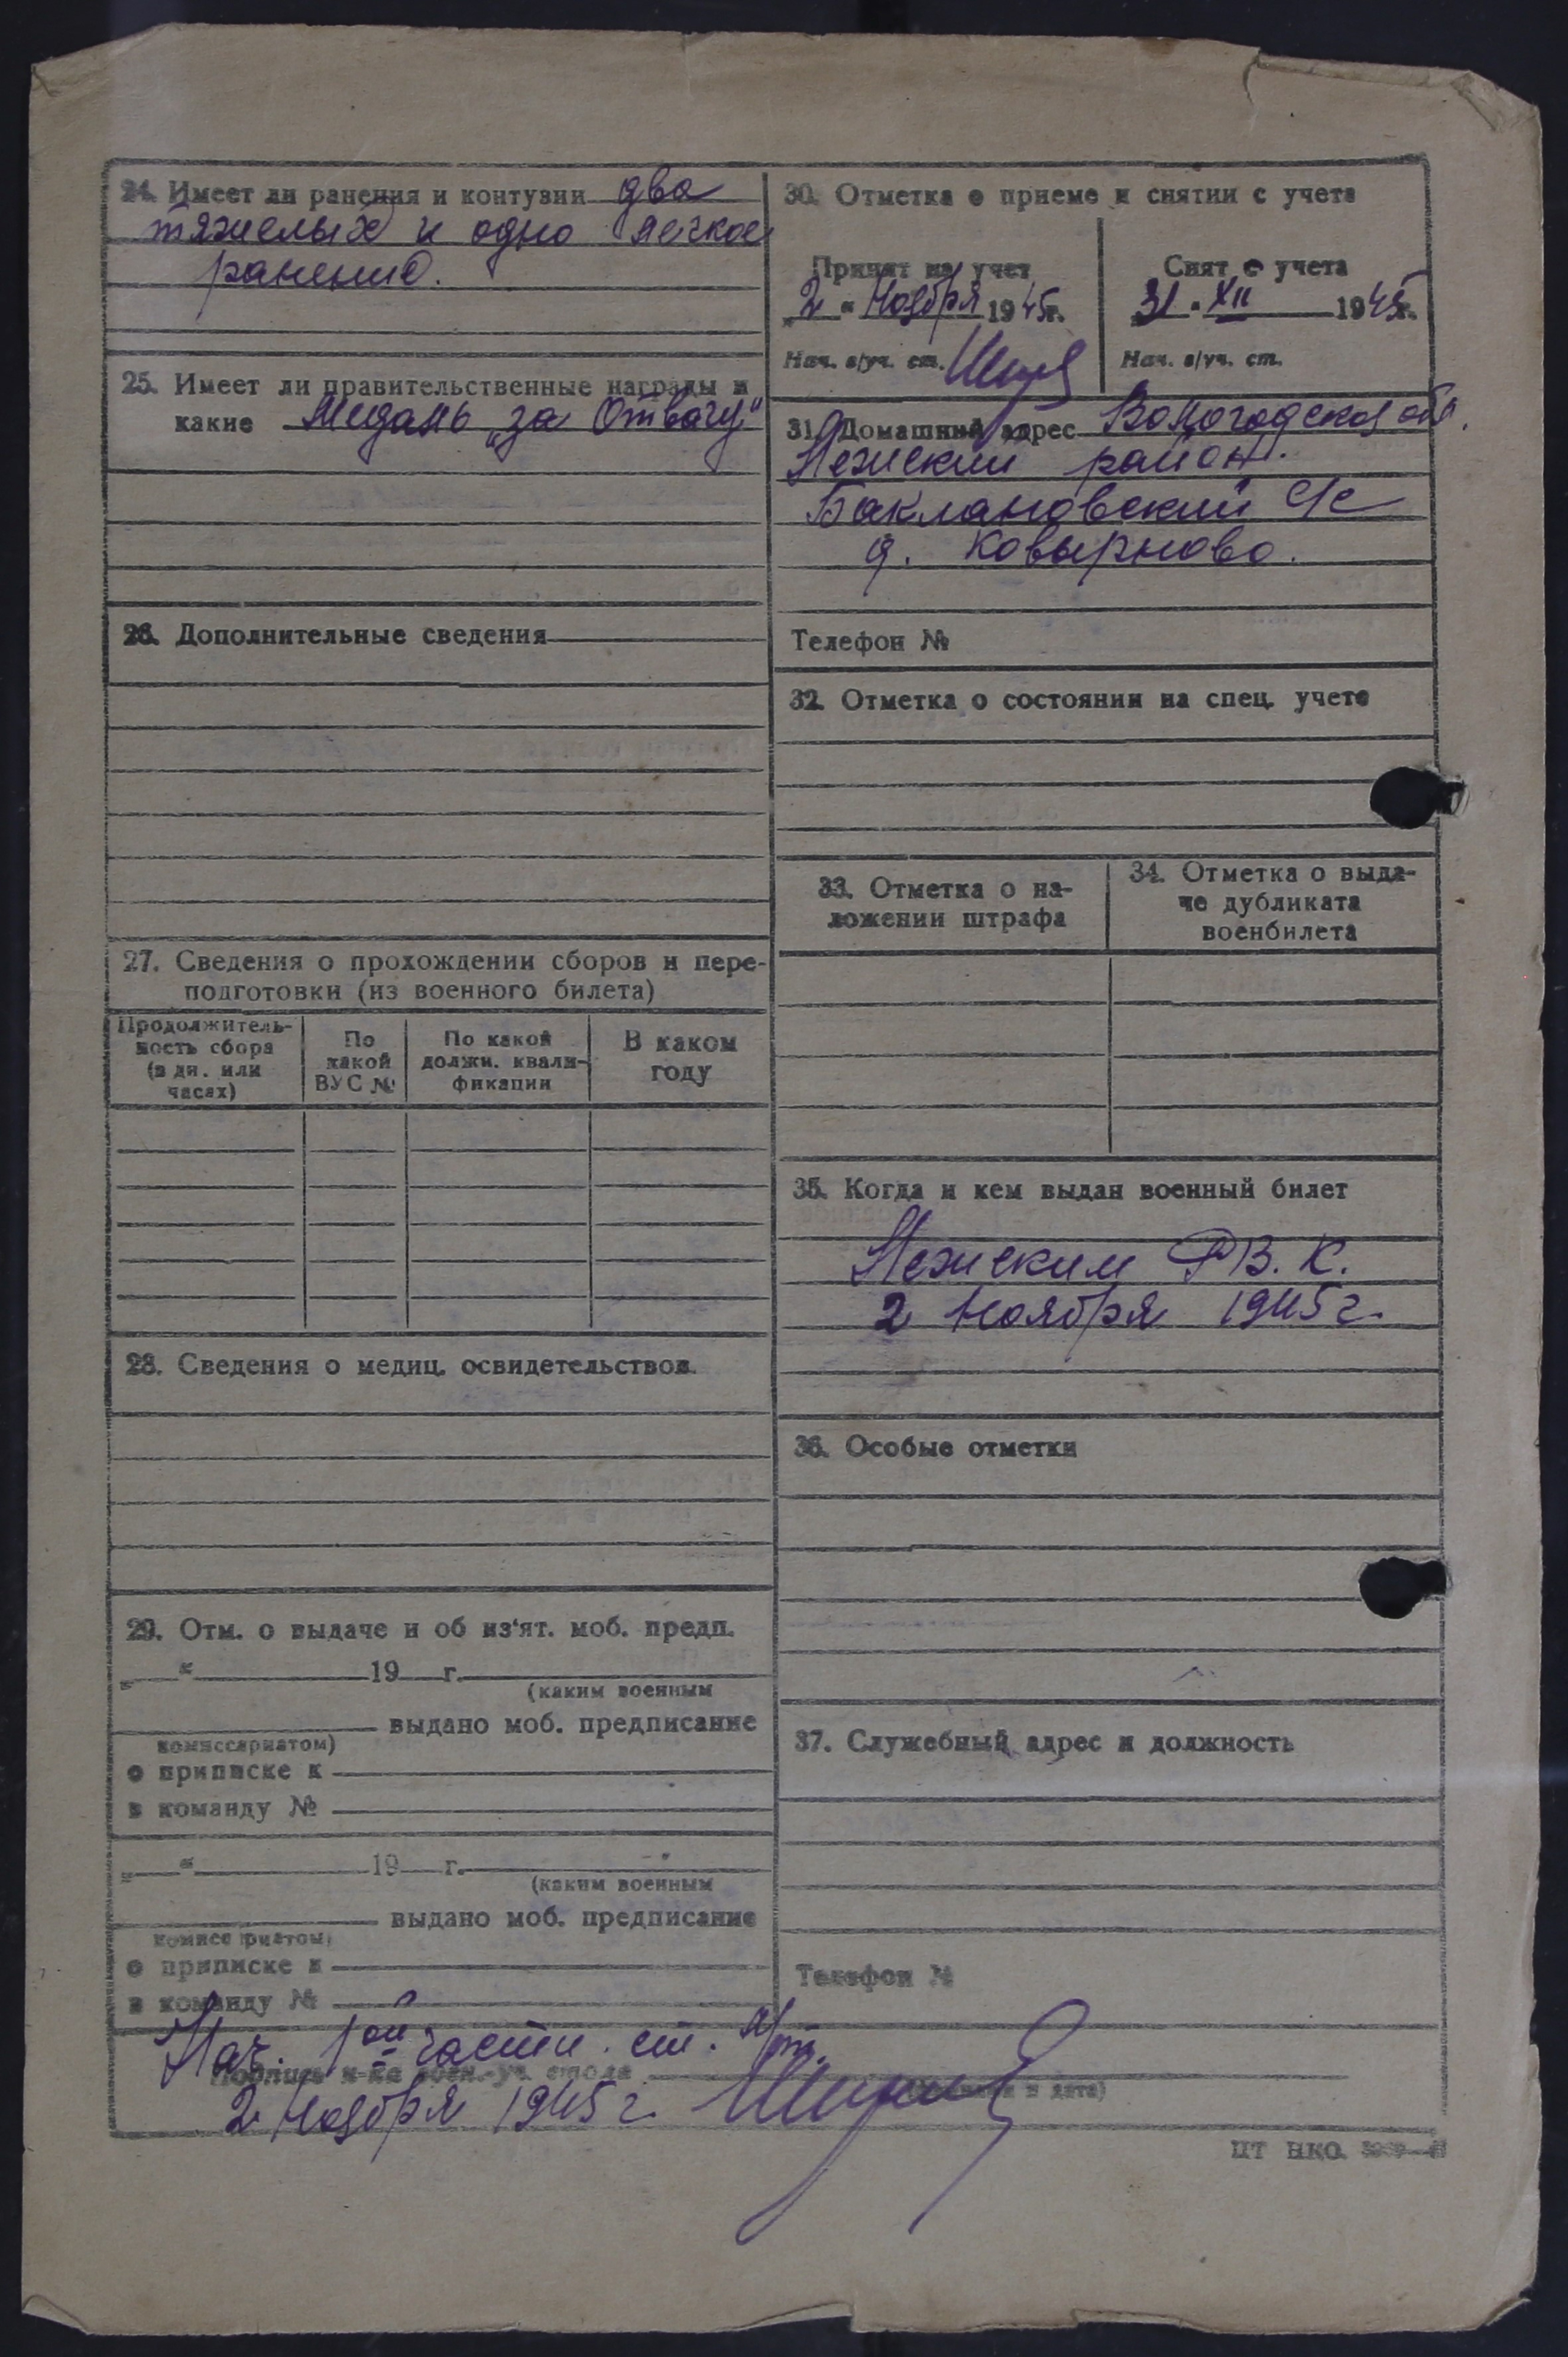 24. Имеет ли ранения и контузии два
тяжелых и одно легкое
ранение.
25. Имеет ли правительственные награды и
какие Медаль „за Отвагу"
26. Дополнительные сведения
27. Сведения о прохождении сборов и пере-
подготовки (из военного билета)
Продолжитель-
ность сбора
(в дн. или
часах)
По
какой
ВУС №
По какой
должн. квали-
фикации
В каком
году
28. Сведения о медиц. освидетельствов.
29. Отм. о выдаче и об из'ят. моб. предп.
„ “ 19 г.
(каким военным
выдано моб. предписание
комиссариатом)
о приписке к
в команду №
„ “ 19 г.
(каким военным
выдано моб. предписание
комиссариатом)
о приписке к
в команду №
30. Отметка о приеме и снятии с учета
Принят на учет
„2 “ Ноября 1945г.
Нач. в/уч. ст.
Снят с учета
„31 “ XII 1945г.
Нач. в/уч. ст.
31. Домашний адрес Вологодской обл.
Лежский район.
Баклановский С/с
д. Ковырново.
Телефон №
32. Отметка о состоянии на спец. учете
33. Отметка о на-
ложении штрафа
34. Отметка о выда-
че дубликата
военбилета
35. Когда и кем выдан военный билет
Лежским РВ.К.
2 Ноября 1945г.
36. Особые отметки
37. Служебный адрес и должность
Телефон №
Нач. 1ой части. ст. л/т.
Подпись н-ка воен.-уч. стола
и дата)
2 Ноября 1945г.
ЦТ НКО.